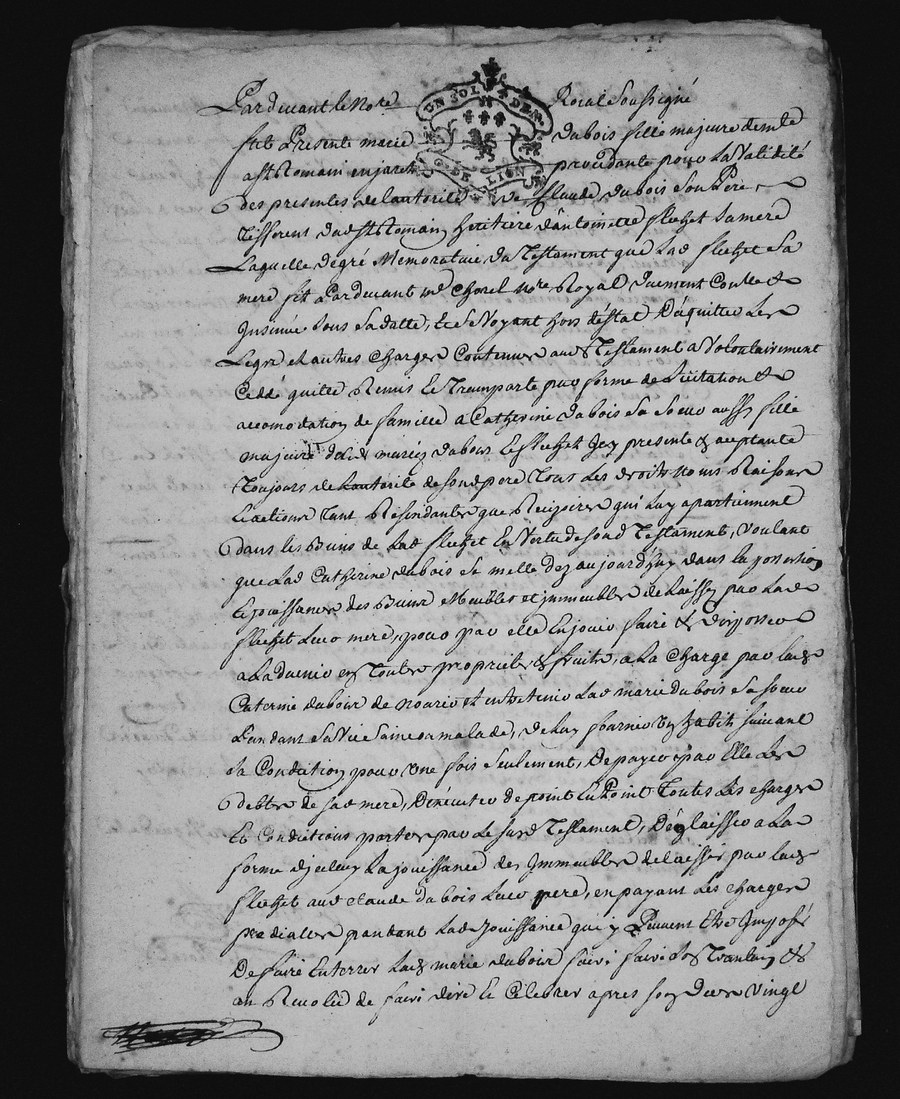 Pardevant le No.re Roial Soussigné
fut Presente marie Dubois fille majeure dem.te
a St Romain en jarets procedante pour La Validité
des presentes de lautorité de Claude dubois Son Pere
Tisserent dud St Romain heritiere d'antoinette flechet sa mere
Laquelle de gré Memorative du Testament que Lad flechet Sa
mere fit a Pardevant me Chorel No.re Royal Duement Controllé &
Insinué sous sa datte, Et se Voyant hors d'estat D'aquitter Les
Legs et autres Charges Contenues aud Testament a Volontairement
Ceddé quitté Remis Et Transporté par forme de Licitation &
accomodation de famille a Catherine dubois Sa Soeur aussy fille
majeure desd mariés dubois Et flechet Icy presente & acceptante
Toujours de Lautorité de sond pere Tous Les droits Noms Raisons
Et actions Tant Rescindantes que Rescisoires qui Luy apartiennent
dans les Biens de Lad flechet En Vertu de sond Testament, Voulant
que Lad Catherine dubois Se mette Dez aujourd'huy dans la possession
Et jouissance des Biens Meubles et immeubles de Laissez par Lad
flechet Leur mere, pour par elle En jouir faire & disposer
a Ladvenir en Toutes proprietes & fruits, a La Charge par lad
Caterine dubois de nourir et entretenir Lad marie dubois sa soeur
Pandant Sa Vie Saine ou malade, de luy fournir Un habit suivant
Sa Condition pour Une fois Seulement, De payer par Elle Les
debtes de sad mere, D'executer de point En Point Toutes Les charges
Et Conditions portées par Le susd Testament, De laisser a La
forme d'iceluy La jouissance des Immeubles delaissés par lad
flechet aud Claude dubois Leur pere, en payant Les charges
prediales pandant Lad Jouissance qui y Peuvent Etre Imposés
De faire Enterrer Lad marie dubois suivi
au Revolu de faire dire Et Celebrer apres son deces Vingt